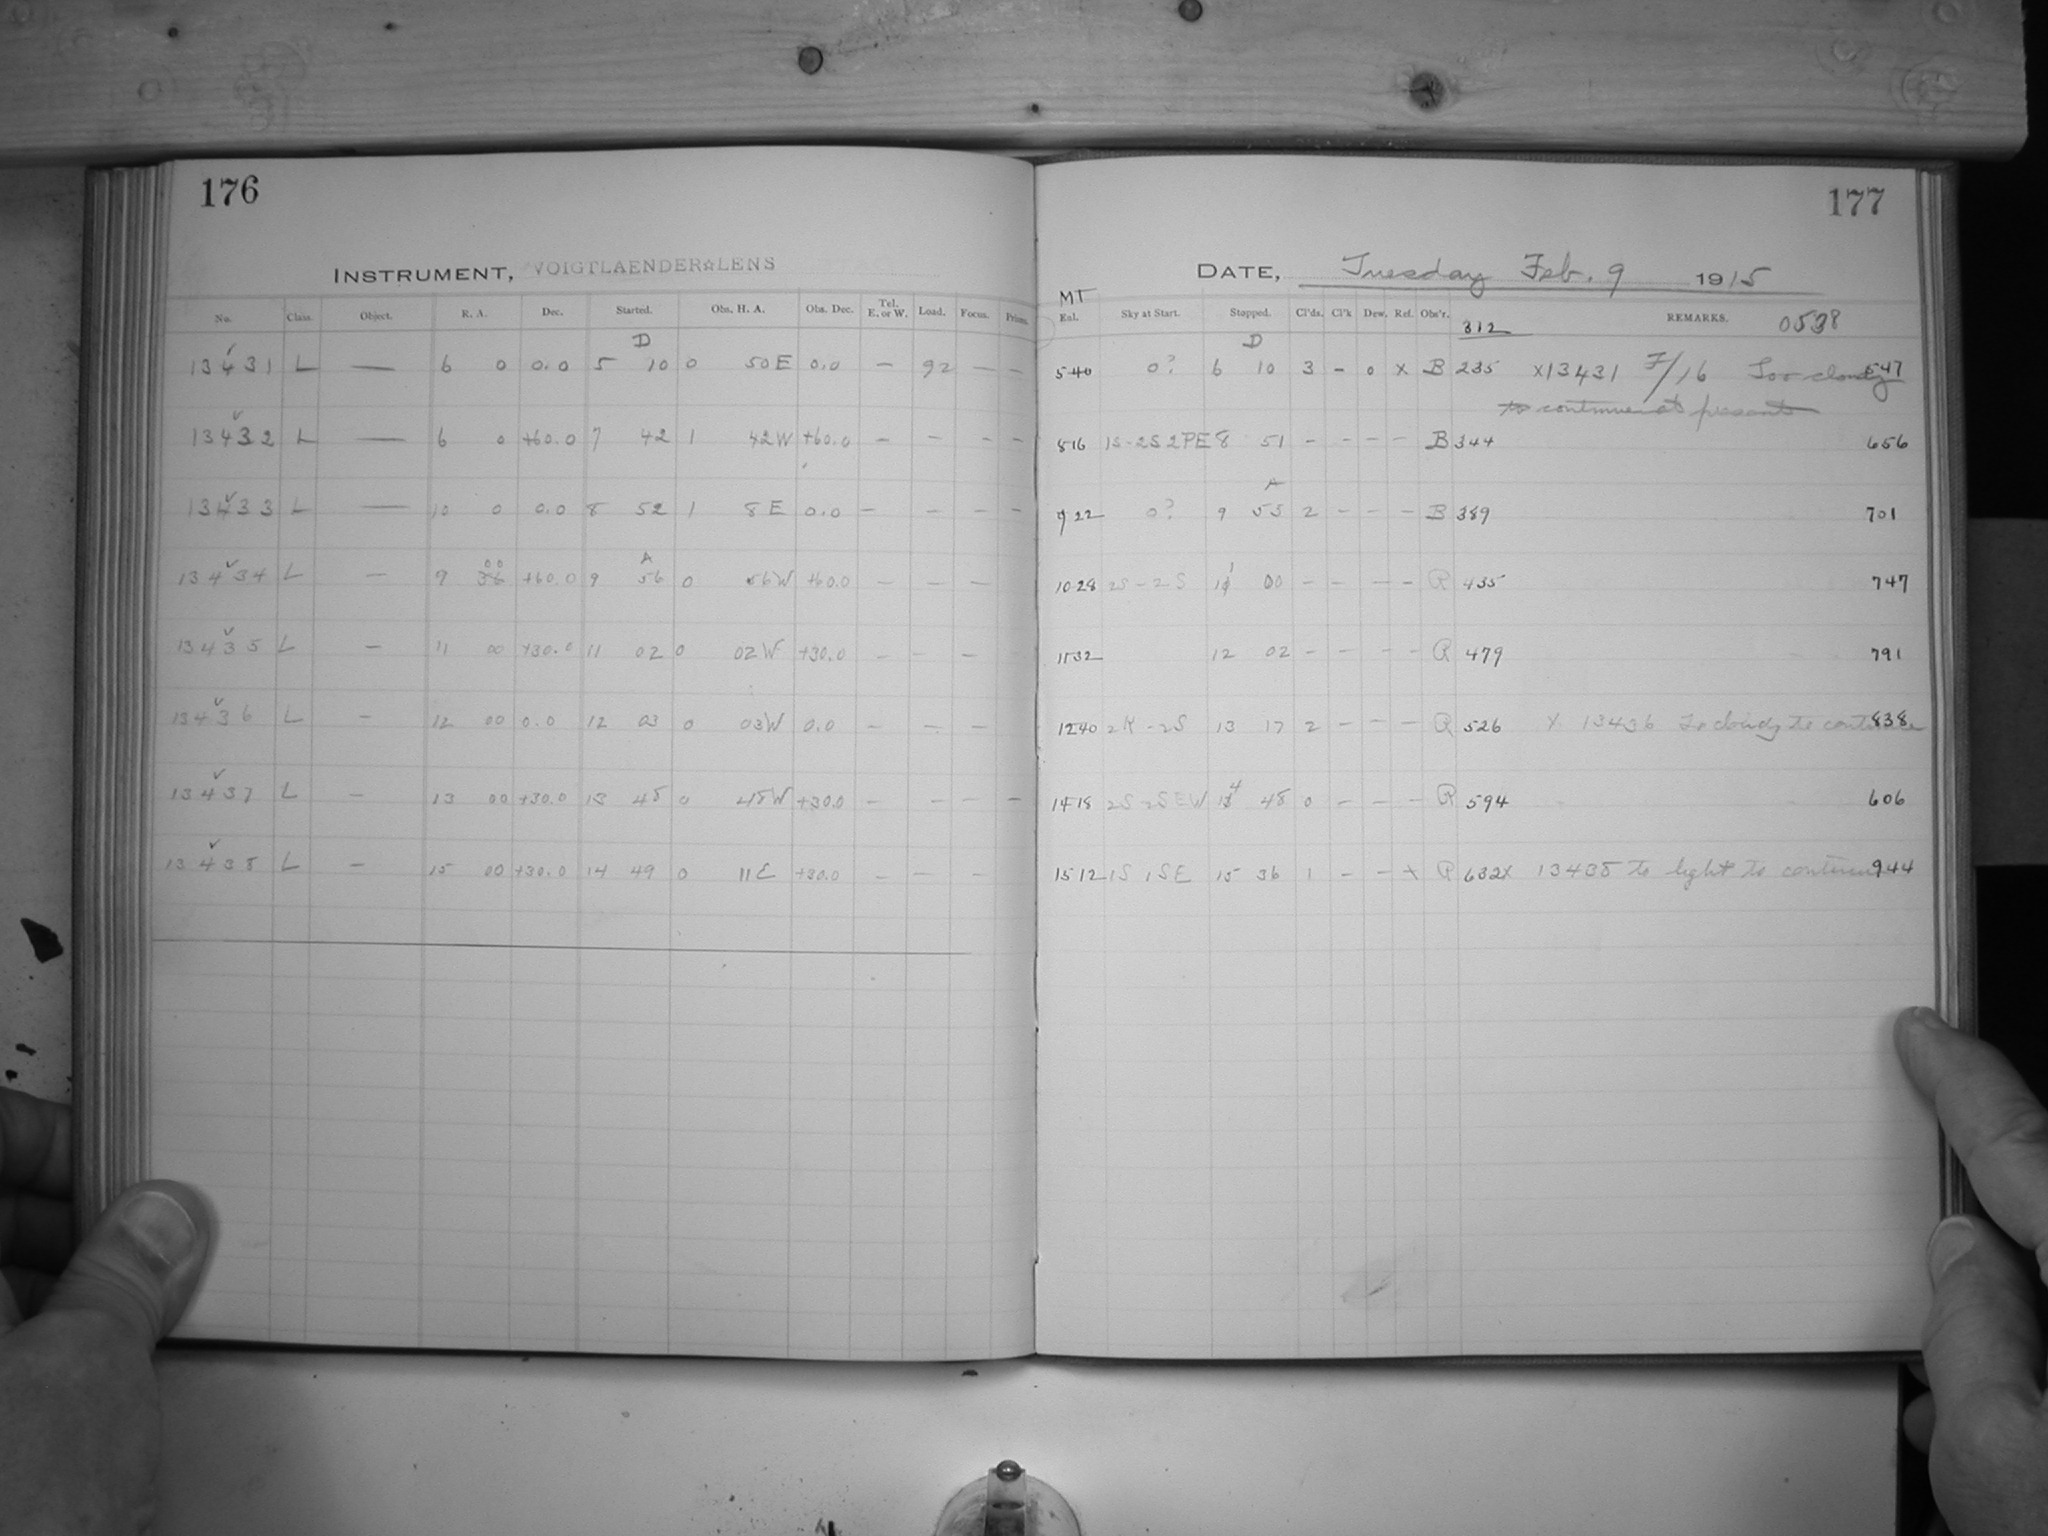 176
INSTRUMENT, VOIGTLAENDER☆LENS
No. Class. Object. R. A. Dec. Started. Obs. H. A. Obs. Dec. Tel. E. or W. Load. Focus. Prism.
D
13431 L — 6 0 0.0 5 10 0 50 E 0.0 — 92 — —
13432 L — 6 0 +60.0 7 42 1 42W +60.0 — — — —
13433 L — 10 0 0.0 8 52 1 8 E 0.0 — — — —
00 A
13434 L — 9 36 +60.0 9 56 0 56W +60.0 — — —
13435 L — 11 00 +30.0 11 02 0 02W +30.0 — — —
13436 L — 12 00 0.0 12 03 0 03W 0.0 — — —
13437 L — 13 00 +30.0 13 48 0 48W +30.0 — — — —
13438 L — 15 00 +30.0 14 49 0 11E +30.0 — — —
177
DATE, Tuesday Feb. 9 1915
MT
Eal. Sky at Start. Stopped. Cl'ds. Cl'k Dew. Ref. Obs'r. 312 REMARKS. 0538
D
540 0? 6 10 3 - 0 X B 235 X13431 F/16 Too cloudy 547
to continue at present
816 1S-2S 2PE 8 51 - - - - B 344 656
A
922 0? 9 55 2 - - - B 389 701
1028 2S-2S 11 00 - - - - R 435 747
1132 12 02 - - - - R 479 791
1240 2K-2S 13 17 2 - - - R 526 X 13436 Too cloudy to continue 838
1418 2S 2SEW 14 48 0 - - - R 594 606
1512 1S 1SE 15 36 1 - - X R 632 X 13438 to light to continue 944